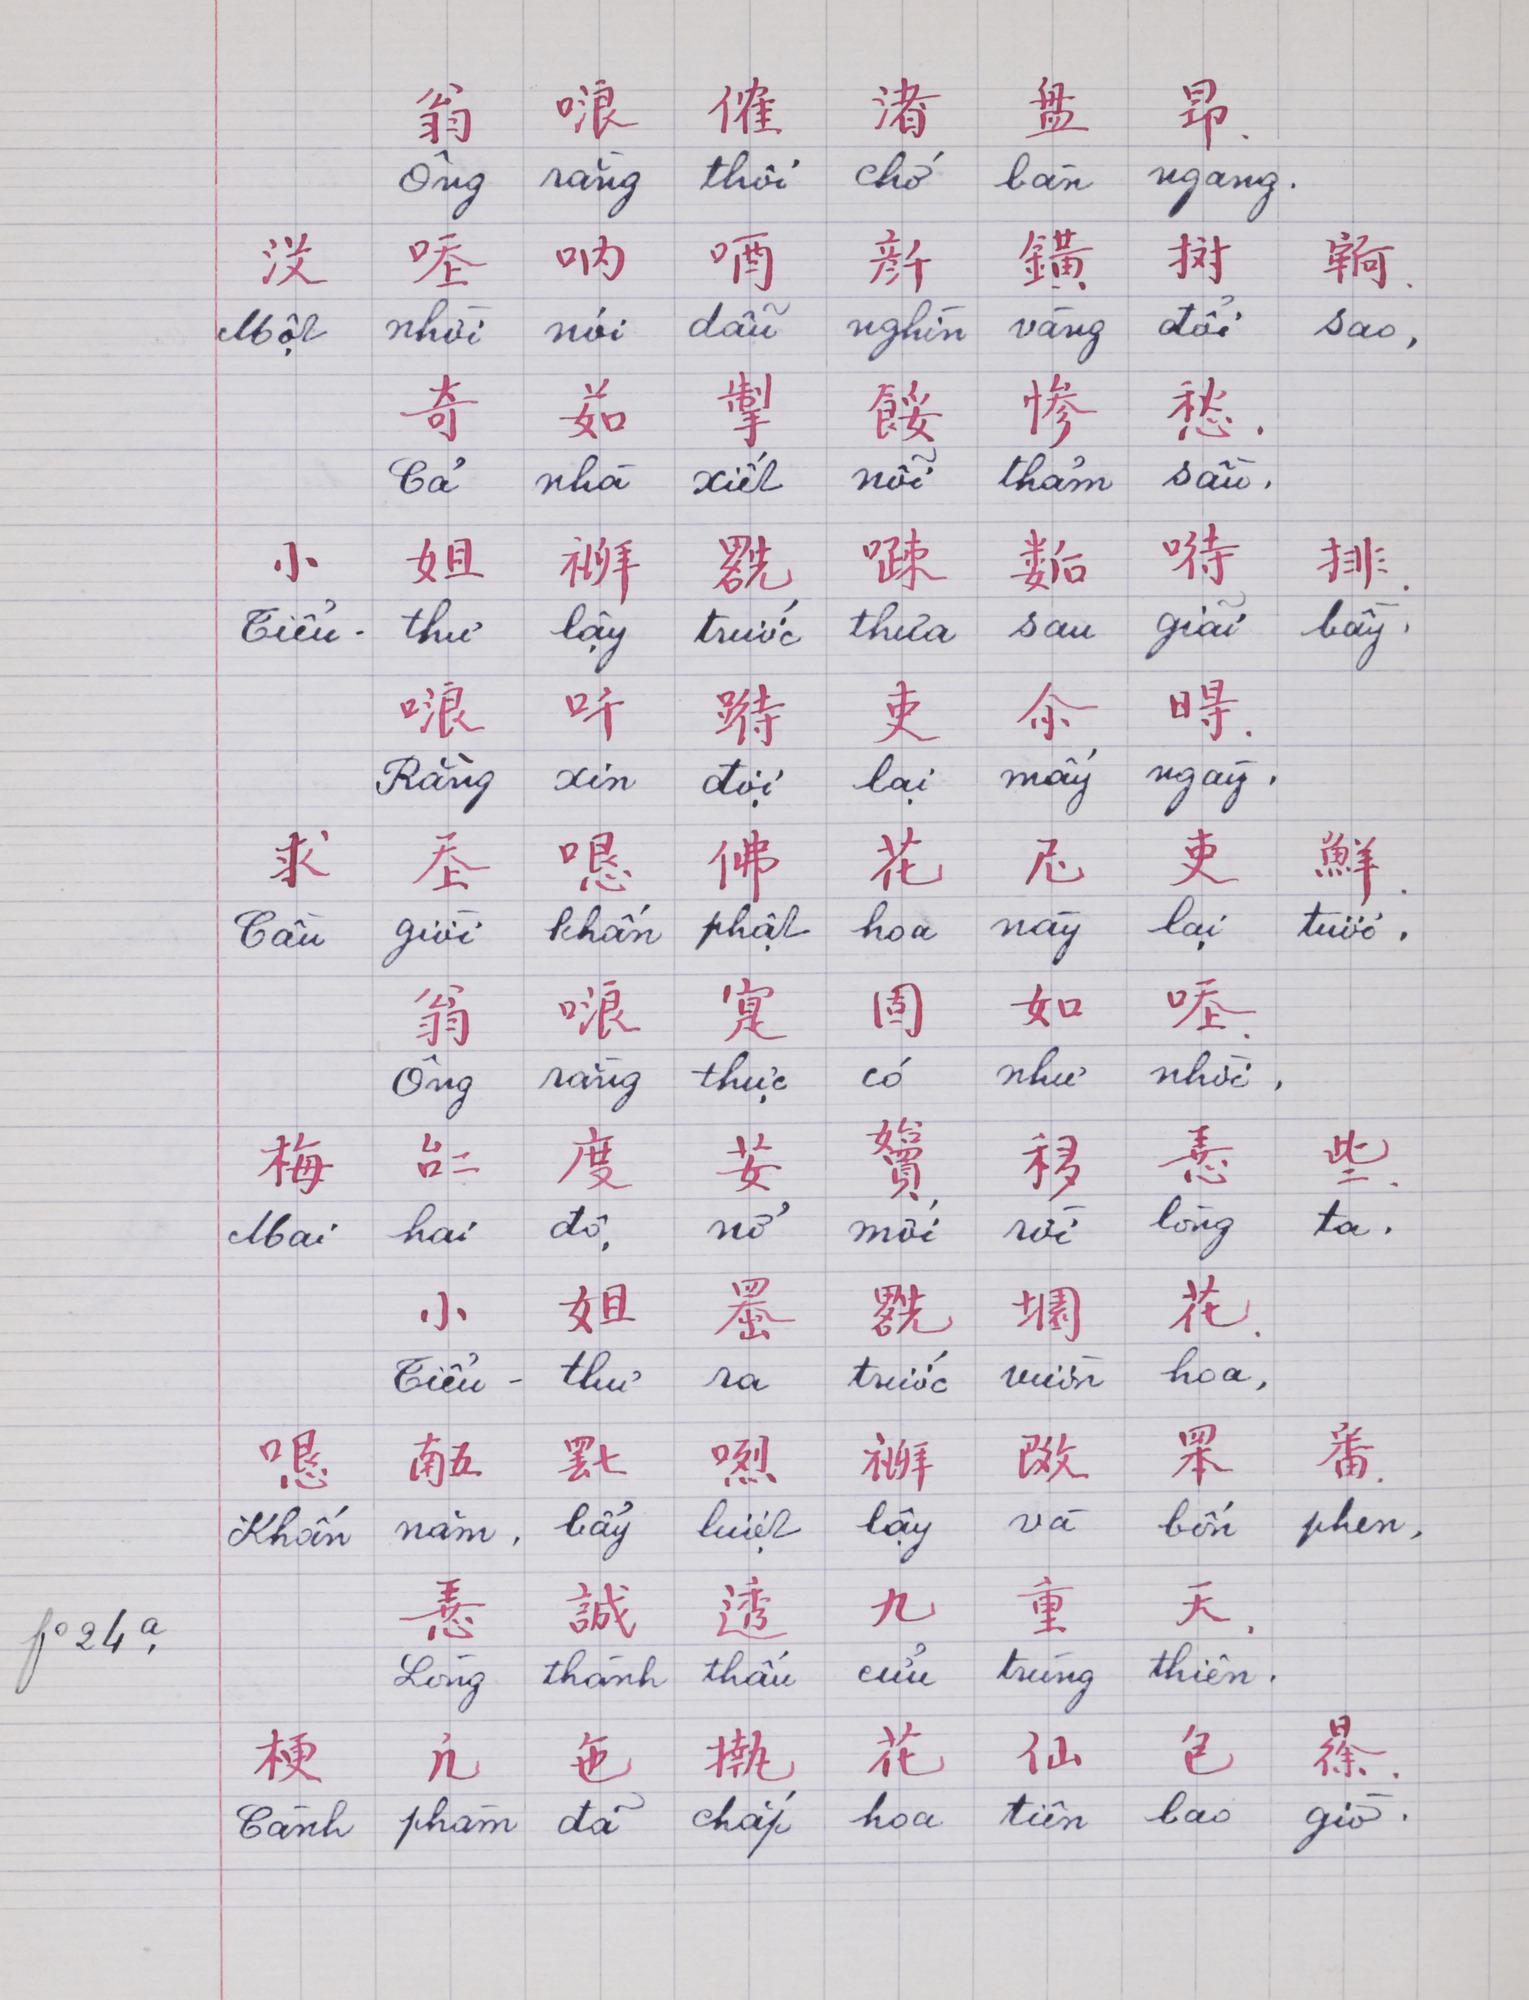 翁 哴 傕 渚 盘 昻.
Ông rằng thôi chớ bàn ngang.
沒 𠰺 吶 唒 𠦳 鐄 𢭲 𫳵.
Một nhời nói dẫu nghìn vàng đổi sao,
奇 茹 掣 餒 惨 愁.
Cả nhà xiết nỗi thảm sầu.
小 姐 𥙩 𠓀 疎 𡢐 待 排.
Tiểu - thư lậy trước thưa sau giãi bầy.
哴 吀 待 吏 𠇍 𣈜.
Rằng xin đợi lại mấy ngày.
求 𡗶 佛 花 尼 吏 鮮.
Cầu giời khấn phật hoa này lại tươi.
翁 哴 寔 固 如 𠰺.
Ông rằng thực có như nhời,
梅 𠄩 度 移 𢚸 些.
Mai hai độ, nở mới rời lòng ta.
小 姐 𠚢 𠓀 園 花.
Tiểu - thư ra trước vườn hoa,
𠄼 𥙩 𦊚 番.
Khấn năm, bẩy luợt lậy và bốn phen,
𢚸 誠 透 九 重 天.
Lòng thành thấu cửu trùng thiên.
fº 24ª,
梗 凢 㐌 執 花 仙 包 𣇞.
Cành phàm đã chắp hoa tiên bao giờ.